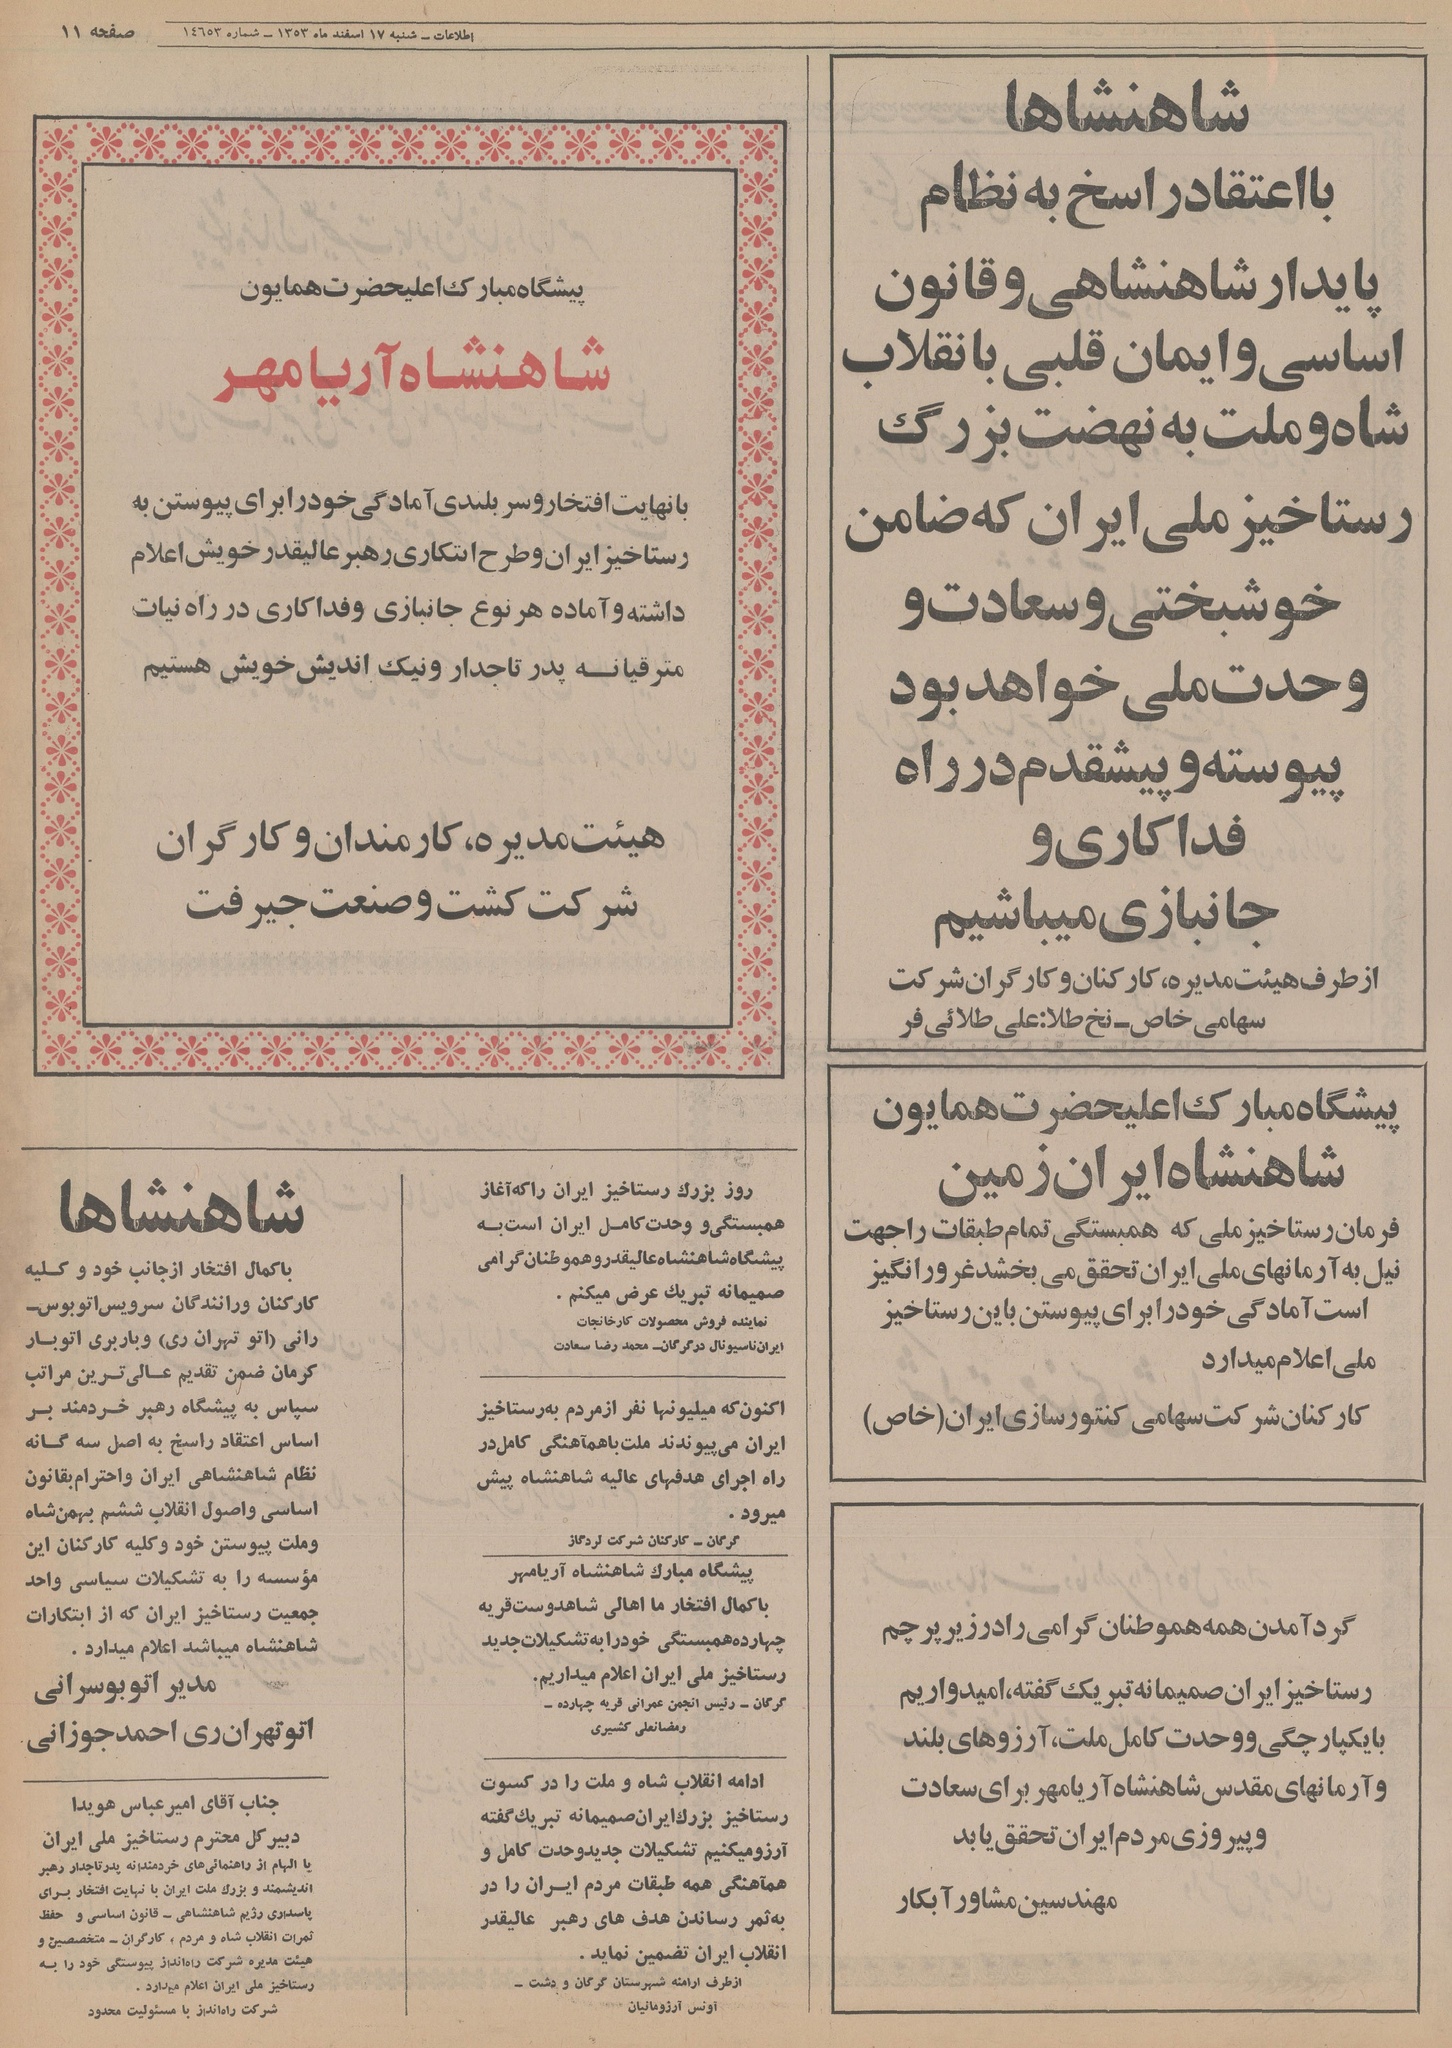 اطلاعات ــ شنبه ۱۷ اسفند ماه ۱۳۵۳ ــ شماره ۱٤٦٥۳
صفحه ۱۱
شاهنشاها
با اعتقاد راسخ به نظام
پایدار شاهنشاهی و قانون
اساسی و ایمان قلبی با نقلاب
شاه و ملت به نهضت بزرگ
رستاخیز ملی ایران که ضامن
خوشبختی و سعادت و
وحدت ملی خواهد بود
پیوسته و پیشقدم در راه
فداکاری و
جانبازی میباشیم
از طرف هیئت مدیره، کارکنان و کارگران شرکت
سهامی خاص ــ نخ طلا: علی طلائی فر
پیشگاه مبارک اعلیحضرت همایون
شاهنشاه ایران زمین
فرمان رستاخیز ملی که همبستگی تمام طبقات را جهت
نیل به آرمانهای ملی ایران تحقق می بخشد غرورانگیز
است آمادگی خود را برای پیوستن باین رستاخیز
ملی اعلام میدارد
کارکنان شرکت سهامی کنتورسازی ایران (خاص)
گرد آمدن همه هموطنان گرامی را در زیر پرچم
رستاخیز ایران صمیمانه تبریک گفته، امیدواریم
با یکپارچگی و وحدت کامل ملت، آرزوهای بلند
و آرمانهای مقدس شاهنشاه آریامهر برای سعادت
و پیروزی مردم ایران تحقق یابد
مهندسین مشاور آبکار
پیشگاه مبارک اعلیحضرت همایون
شاهنشاه آریامهر
با نهایت افتخار و سربلندی آمادگی خود را برای پیوستن به
رستاخیز ایران و طرح ابتکاری رهبر عالیقدر خویش اعلام
داشته و آماده هر نوع جانبازی و فداکاری در راه نیات
مترقیانه پدر تاجدار و نیک اندیش خویش هستیم
هیئت مدیره، کارمندان و کارگران
شرکت کشت و صنعت جیرفت
روز بزرگ رستاخیز ایران را که آغاز
همبستگی و وحدت کامل ایران است به
پیشگاه شاهنشاه عالیقدر و هموطنان گرامی
صمیمانه تبریک عرض میکنم .
نماینده فروش محصولات کارخانجات
ایران ناسیونال در گرگان ــ محمد رضا سعادت
اکنون که میلیونها نفر از مردم به رستاخیز
ایران می پیوندند ملت با هم آهنگی کامل در
راه اجرای هدفهای عالیه شاهنشاه پیش
میرود .
گرگان ــ کارکنان شرکت لردگاز
پیشگاه مبارک شاهنشاه آریامهر
با کمال افتخار ما اهالی شاهدوست قریه
چهارده همبستگی خود را به تشکیلات جدید
رستاخیز ملی ایران اعلام میداریم.
گرگان ــ رئیس انجمن عمرانی قریه چهارده ــ
رمضانعلی کشیری
ادامه انقلاب شاه و ملت را در کسوت
رستاخیز بزرگ ایران صمیمانه تبریک گفته
آرزو میکنیم تشکیلات جدید وحدت کامل و
هم آهنگی همه طبقات مردم ایران را در
به ثمر رساندن هدف های رهبر عالیقدر
انقلاب ایران تضمین نماید .
از طرف ارامنه شهرستان گرگان و دشت ــ
آونس آرزومانیان
شاهنشاها
با کمال افتخار از جانب خود و کلیه
کارکنان و رانندگان سرویس اتوبوس ــ
رانی (اتو تهران ری) و باربری اتوبار
کرمان ضمن تقدیم عالی ترین مراتب
سپاس به پیشگاه رهبر خردمند بر
اساس اعتقاد راسخ به اصل سه گانه
نظام شاهنشاهی ایران و احترام بقانون
اساسی و اصول انقلاب ششم بهمن شاه
و ملت پیوستن خود و کلیه کارکنان این
مؤسسه را به تشکیلات سیاسی واحد
جمعیت رستاخیز ایران که از ابتکارات
شاهنشاه میباشد اعلام میدارد .
مدیر اتوبوسرانی
اتو تهران ری احمد جوزانی
جناب آقای امیر عباس هویدا
دبیر کل محترم رستاخیز ملی ایران
با الهام از راهنمائی های خردمندانه پدر تاجدار رهبر
اندیشمند و بزرگ ملت ایران با نهایت افتخار برای
پاسداری رژیم شاهنشاهی ــ قانون اساسی و حفظ
ثمرات انقلاب شاه و مردم ، کارگران ــ متخصصین و
هیئت مدیره شرکت راه انداز پیوستگی خود را به
رستاخیز ملی ایران اعلام میدارد .
شرکت راه انداز با مسئولیت محدود